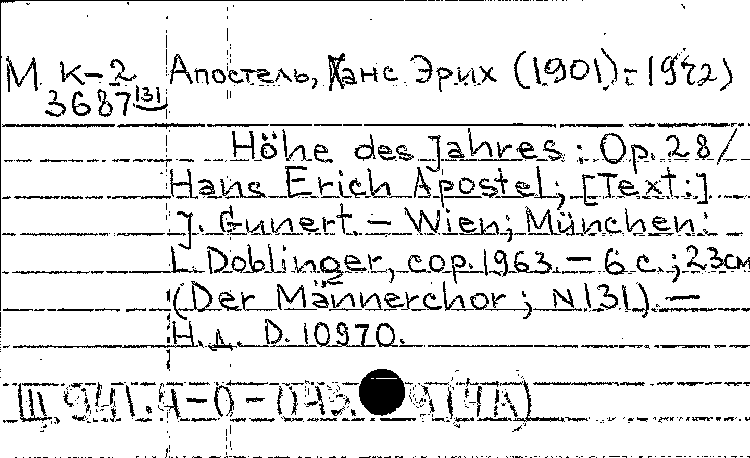 М К-2 Апостель, Ханс Эрих (1901)-1972)
3687 [131]
Höhe des Jahres : Op. 28 /
Hans Erich Apostel ; [Text:]
J. Gunert. – Wien ; München :
L. Doblinger, cop. 1963. – 6 с. ; 23см
(Der Männerchor ; N 131). –
Н. д. D. 10970.
Щ 941.4-0-043. 9(4А)